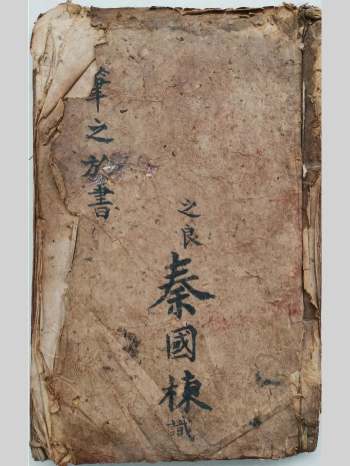 之良
秦國棟識
筆之於書